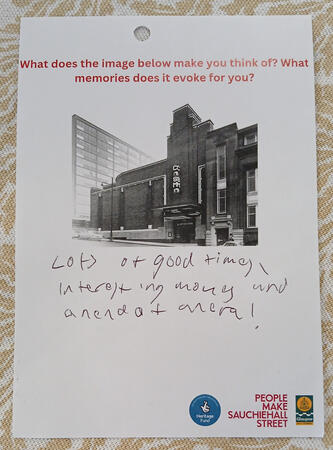 What does the image below make you think of? What
memories does it evoke for you?
Lots of good times,
interesting movies and
Heritage
Fund
PEOPLE
MAKE
SAUCHIEHALL
STREET